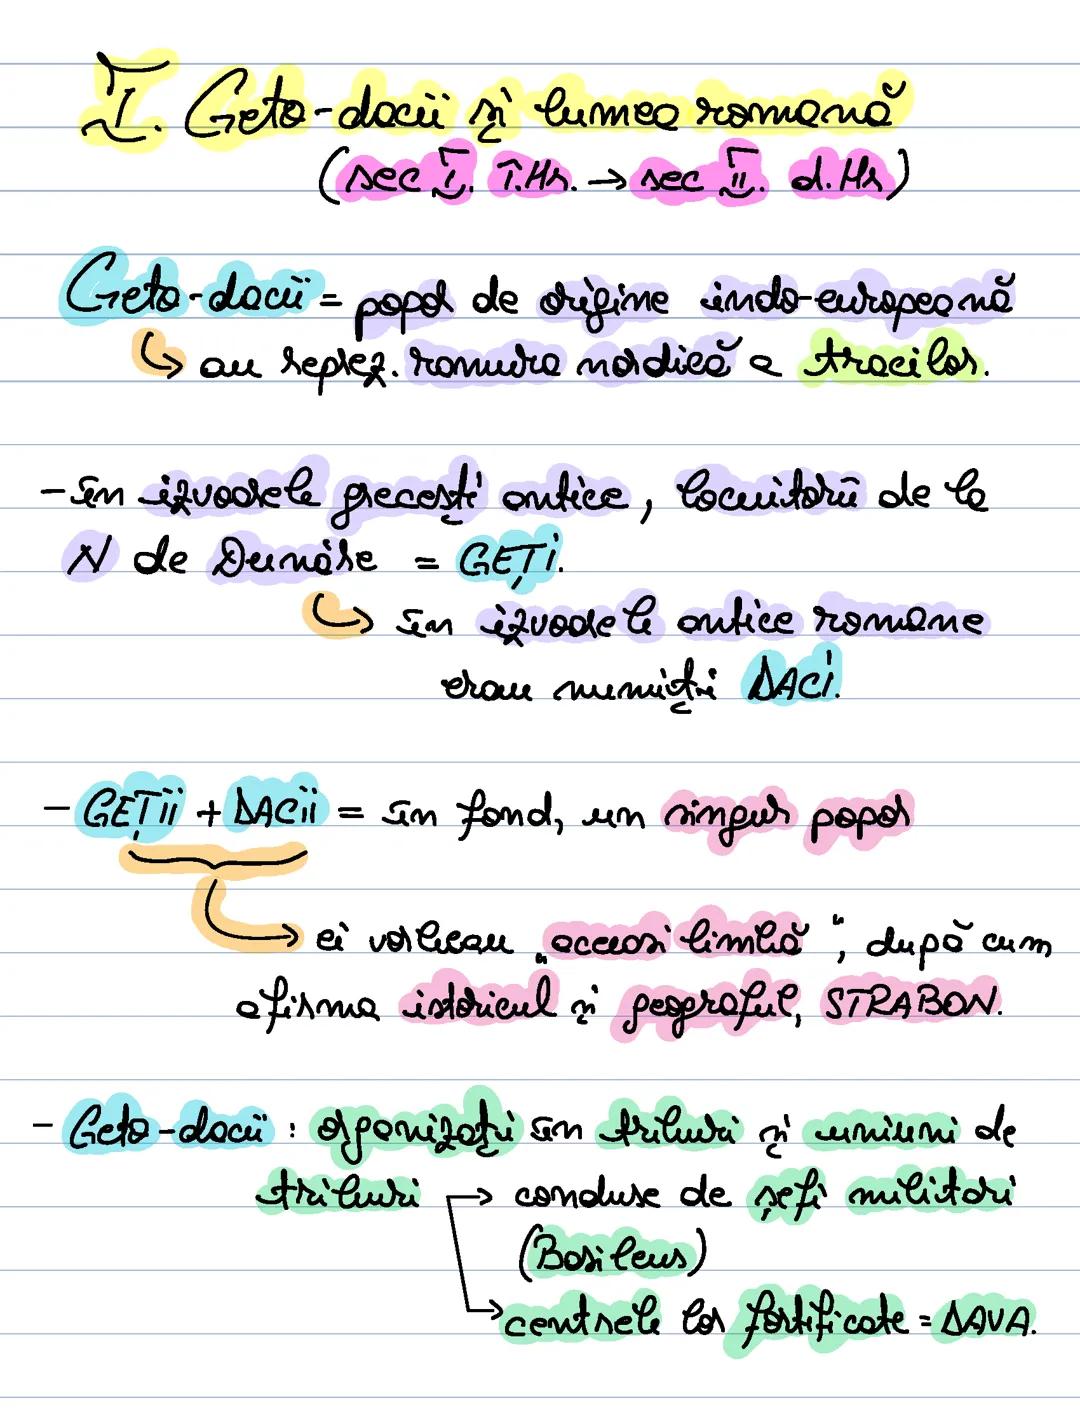 I. Geto-dacii și lumea romană
(sec I. î.Hr. → sec II. d.Hr)
Geto-dacii = popor de origine indo-europeană
↳ au reprez. ramura nordică a tracilor.
- în izvoarele grecești antice, locuitorii de la
N de Dunăre = GEȚI.
↳ în izvoarele antice romane
erau numiți DACI.
- GEȚII + DACII = în fond, un singur popor
→ ei vorbeau „aceeasi limbă", după cum
afirma istoricul și geograful, STRABON.
- Geto-dacii : organizați în triburi și uniuni de
triburi → conduse de șefi militari
(Basileus)
→ centrele lor fortificate = DAVA.